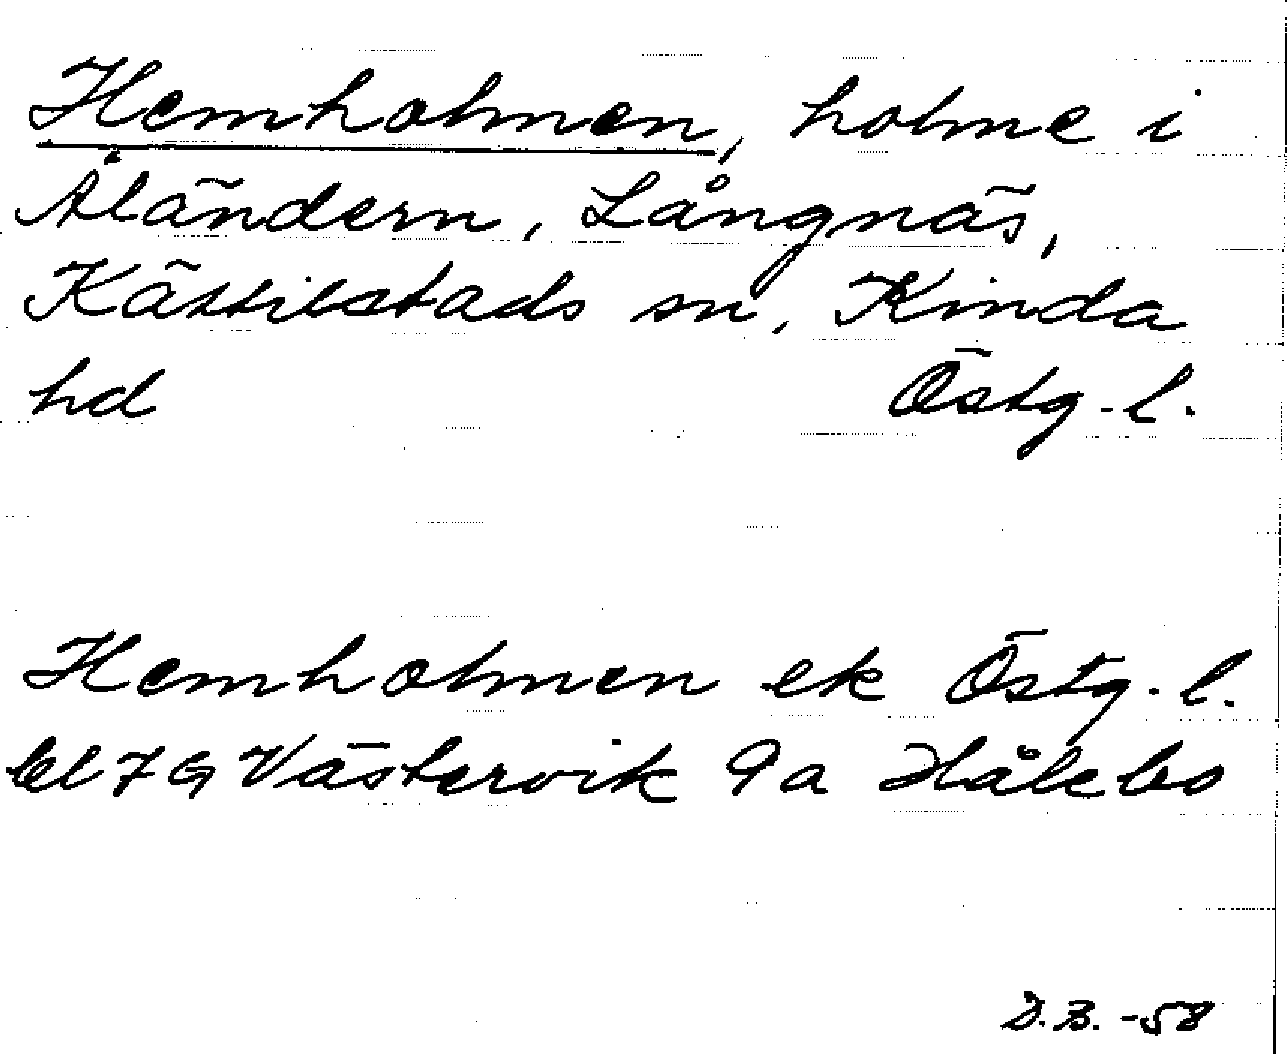 Hemholmen, holme i
Åländern, Långnäs,
Kättilstads sn, Kinda
hd Östg. l.
Hemholmen ek Östg. l.
bl 7 G Västervik 9a Hålebo
D.B. -58